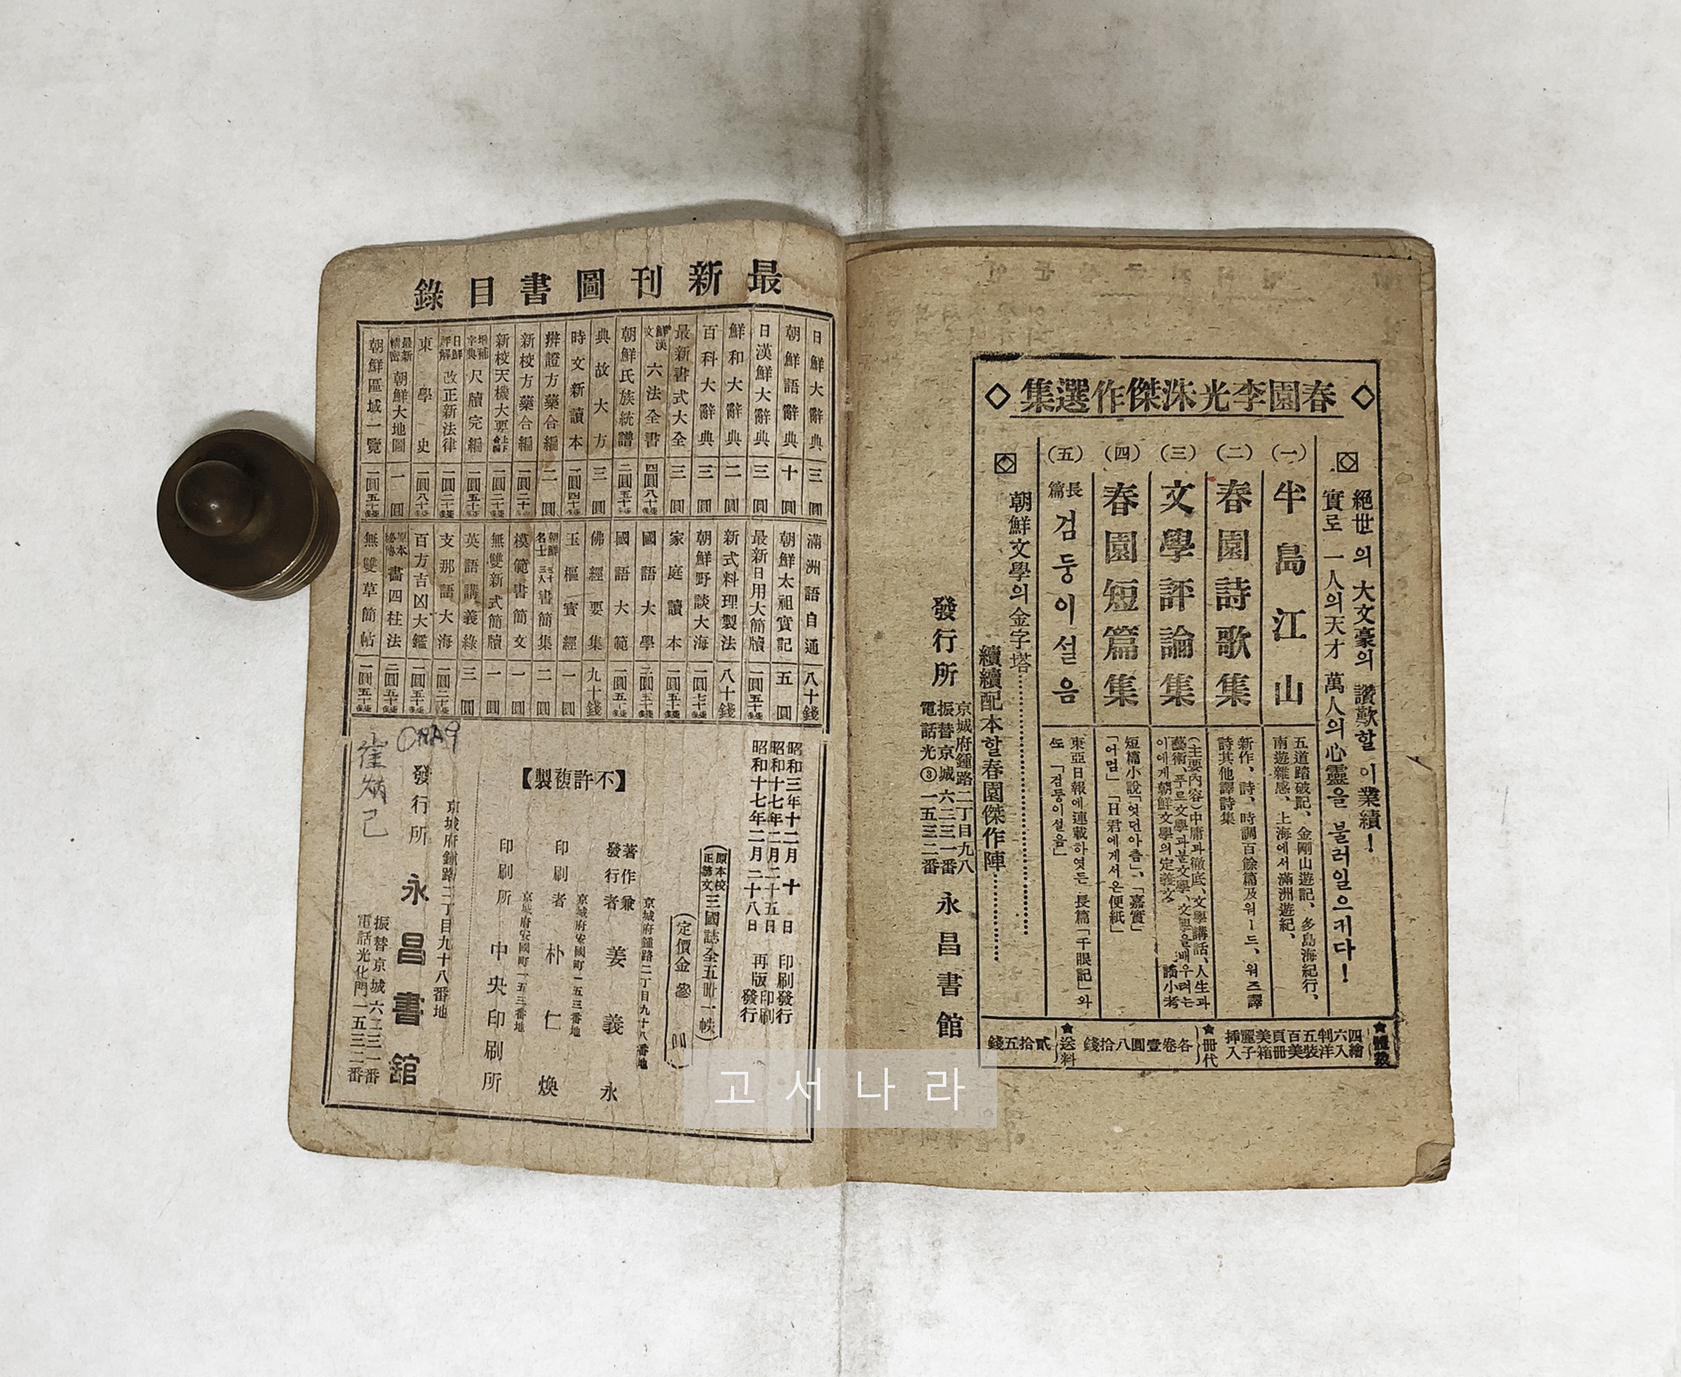 ◇春園李光洙傑作選集◇
絕世의 大文豪의 讚歎할 이業績!
實로 一人의天才 萬人의心靈을 불러일으키다!
(一)
半島江山
五道踏破記、金剛山遊記、多島海紀行、
南遊雜感、上海에서滿洲遊紀、
(二)
春園詩歌集
新作、詩、時調百餘篇及워ー드、워즈譯
詩其他譯詩集
(三)
文學評論集
(主要內容)中庸과徹底、文學講話、人生과
藝術、푸로文學과
이에게朝鮮文學의定義
(四)
春園短篇集
短篇小說「엇던아츰」、「嘉實」
「어멈」「H君에게서온便紙」
(五)
長篇
검둥이설음
東亞日報에連載하엿든 長篇「千眼記」와
또「검둥이설음」
朝鮮文學의金字塔
續續配本할春園傑作陣
★體裁
四六判五百頁美麗
繪入洋裝美冊箱子挿入
★冊代
各卷壹圓八拾錢
★送料
貳拾五錢
發行所
京城府鍾路二丁目九八
振替京城六二三一番
電話光③一五三二番
永昌書館
最新刊圖書目錄
日鮮大辭典 三圓
朝鮮語辭典 十圓
日漢鮮大辭典 三圓
鮮和大辭典 二圓
百科大辭典 三圓
最新書式大全 三圓
鮮漢文 六法全書 四圓八十錢
朝鮮氏族統譜 二圓五十錢
典故大方 三圓
時文新讀本 一圓四十錢
辨證方藥合編 二圓
新校方藥合編 一圓二十錢
新校天機大要 一圓二十錢
增補字典 尺牘完編 一圓五十錢
日鮮詳解 改正新法律 一圓二十錢
東學史 一圓八十錢
最新精密 朝鮮大地圖 一圓
朝鮮區域一覽 一圓五十錢
滿洲語自通 八十錢
朝鮮太祖實記 五圓
最新日用大簡牘 一圓五十錢
新式料理製法 八十錢
朝鮮野談大海 一圓七十錢
家庭讀本 一圓五十錢
國語大學 二圓五十錢
國語大範 一圓五十錢
佛經要集 九十錢
玉樞寶經 一圓
朝鮮名士 書簡集 二圓
模範書簡文 一圓
無雙新式簡牘 一圓
英語講義錄 三圓
支那語大海 一圓二十錢
百方吉凶大鑑 一圓五十錢
畵四柱法 二圓五十錢
無雙草簡帖 一圓五十錢
昭和三年十二月十日 印刷發行
昭和十七年二月二十五日 再版印刷
昭和十七年二月二十八日 再版發行
原本校正諺文 三國誌全五冊一帙
(定價金參
【不許複製】
京城府鍾路二丁目九十八番地
著作兼發行者 姜義永
京城府安國町一五三番地
印刷者 朴仁煥
京城府安國町一五三番地
印刷所 中央印刷所
京城府鍾路二丁目九十八番地
發行所 永昌書館
振替京城六二三一番
電話光化門一五三二番
고서나라